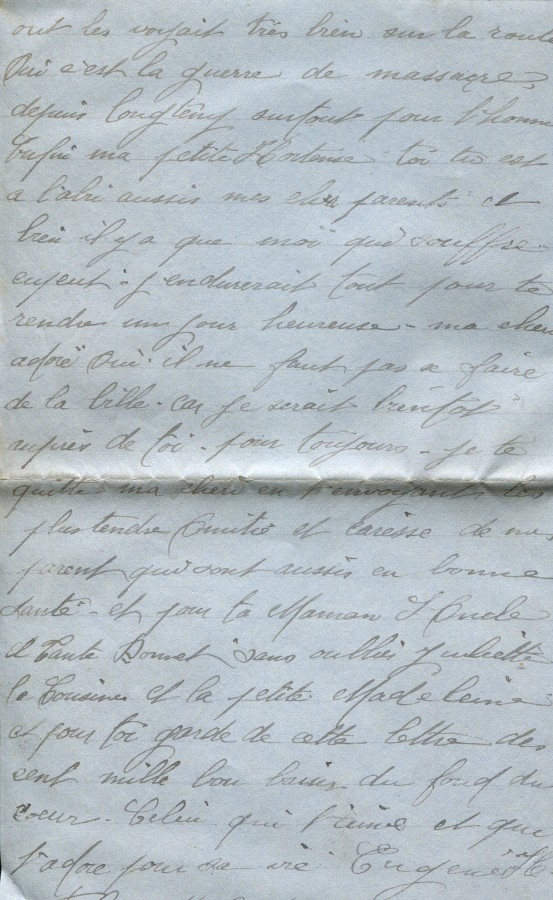 ont les voyait très bien sur la route
Oui c'est la guerre de massacre
depuis longtemp surtout pour l'homme
Enfin ma petite Hortense toi tu est
a l'abri aussis mes cher parents et
bien il y a que moi qui souffre
j'endurerait tout pour te
rendre un jour heureuse - ma cheri
adoré Oui il ne faut pas se faire
de la bille - car je serait bientot
auprès de toi - pour toujours - je te
quitte ma cheri en t'envoyant les
plus tendre Amitié et caresse de mes
parent qui sont aussis en bonne
santé - et pour ta Maman l'Oncle
et Tante Bonnet sans oublier Juliette
la Cousine et la petite Madeleine
et pour toi garde de cette lettre des
cent mille bon baiser du fond du
coeur - Celui qui t'aime et que
t'adore pour sa vie Eugène